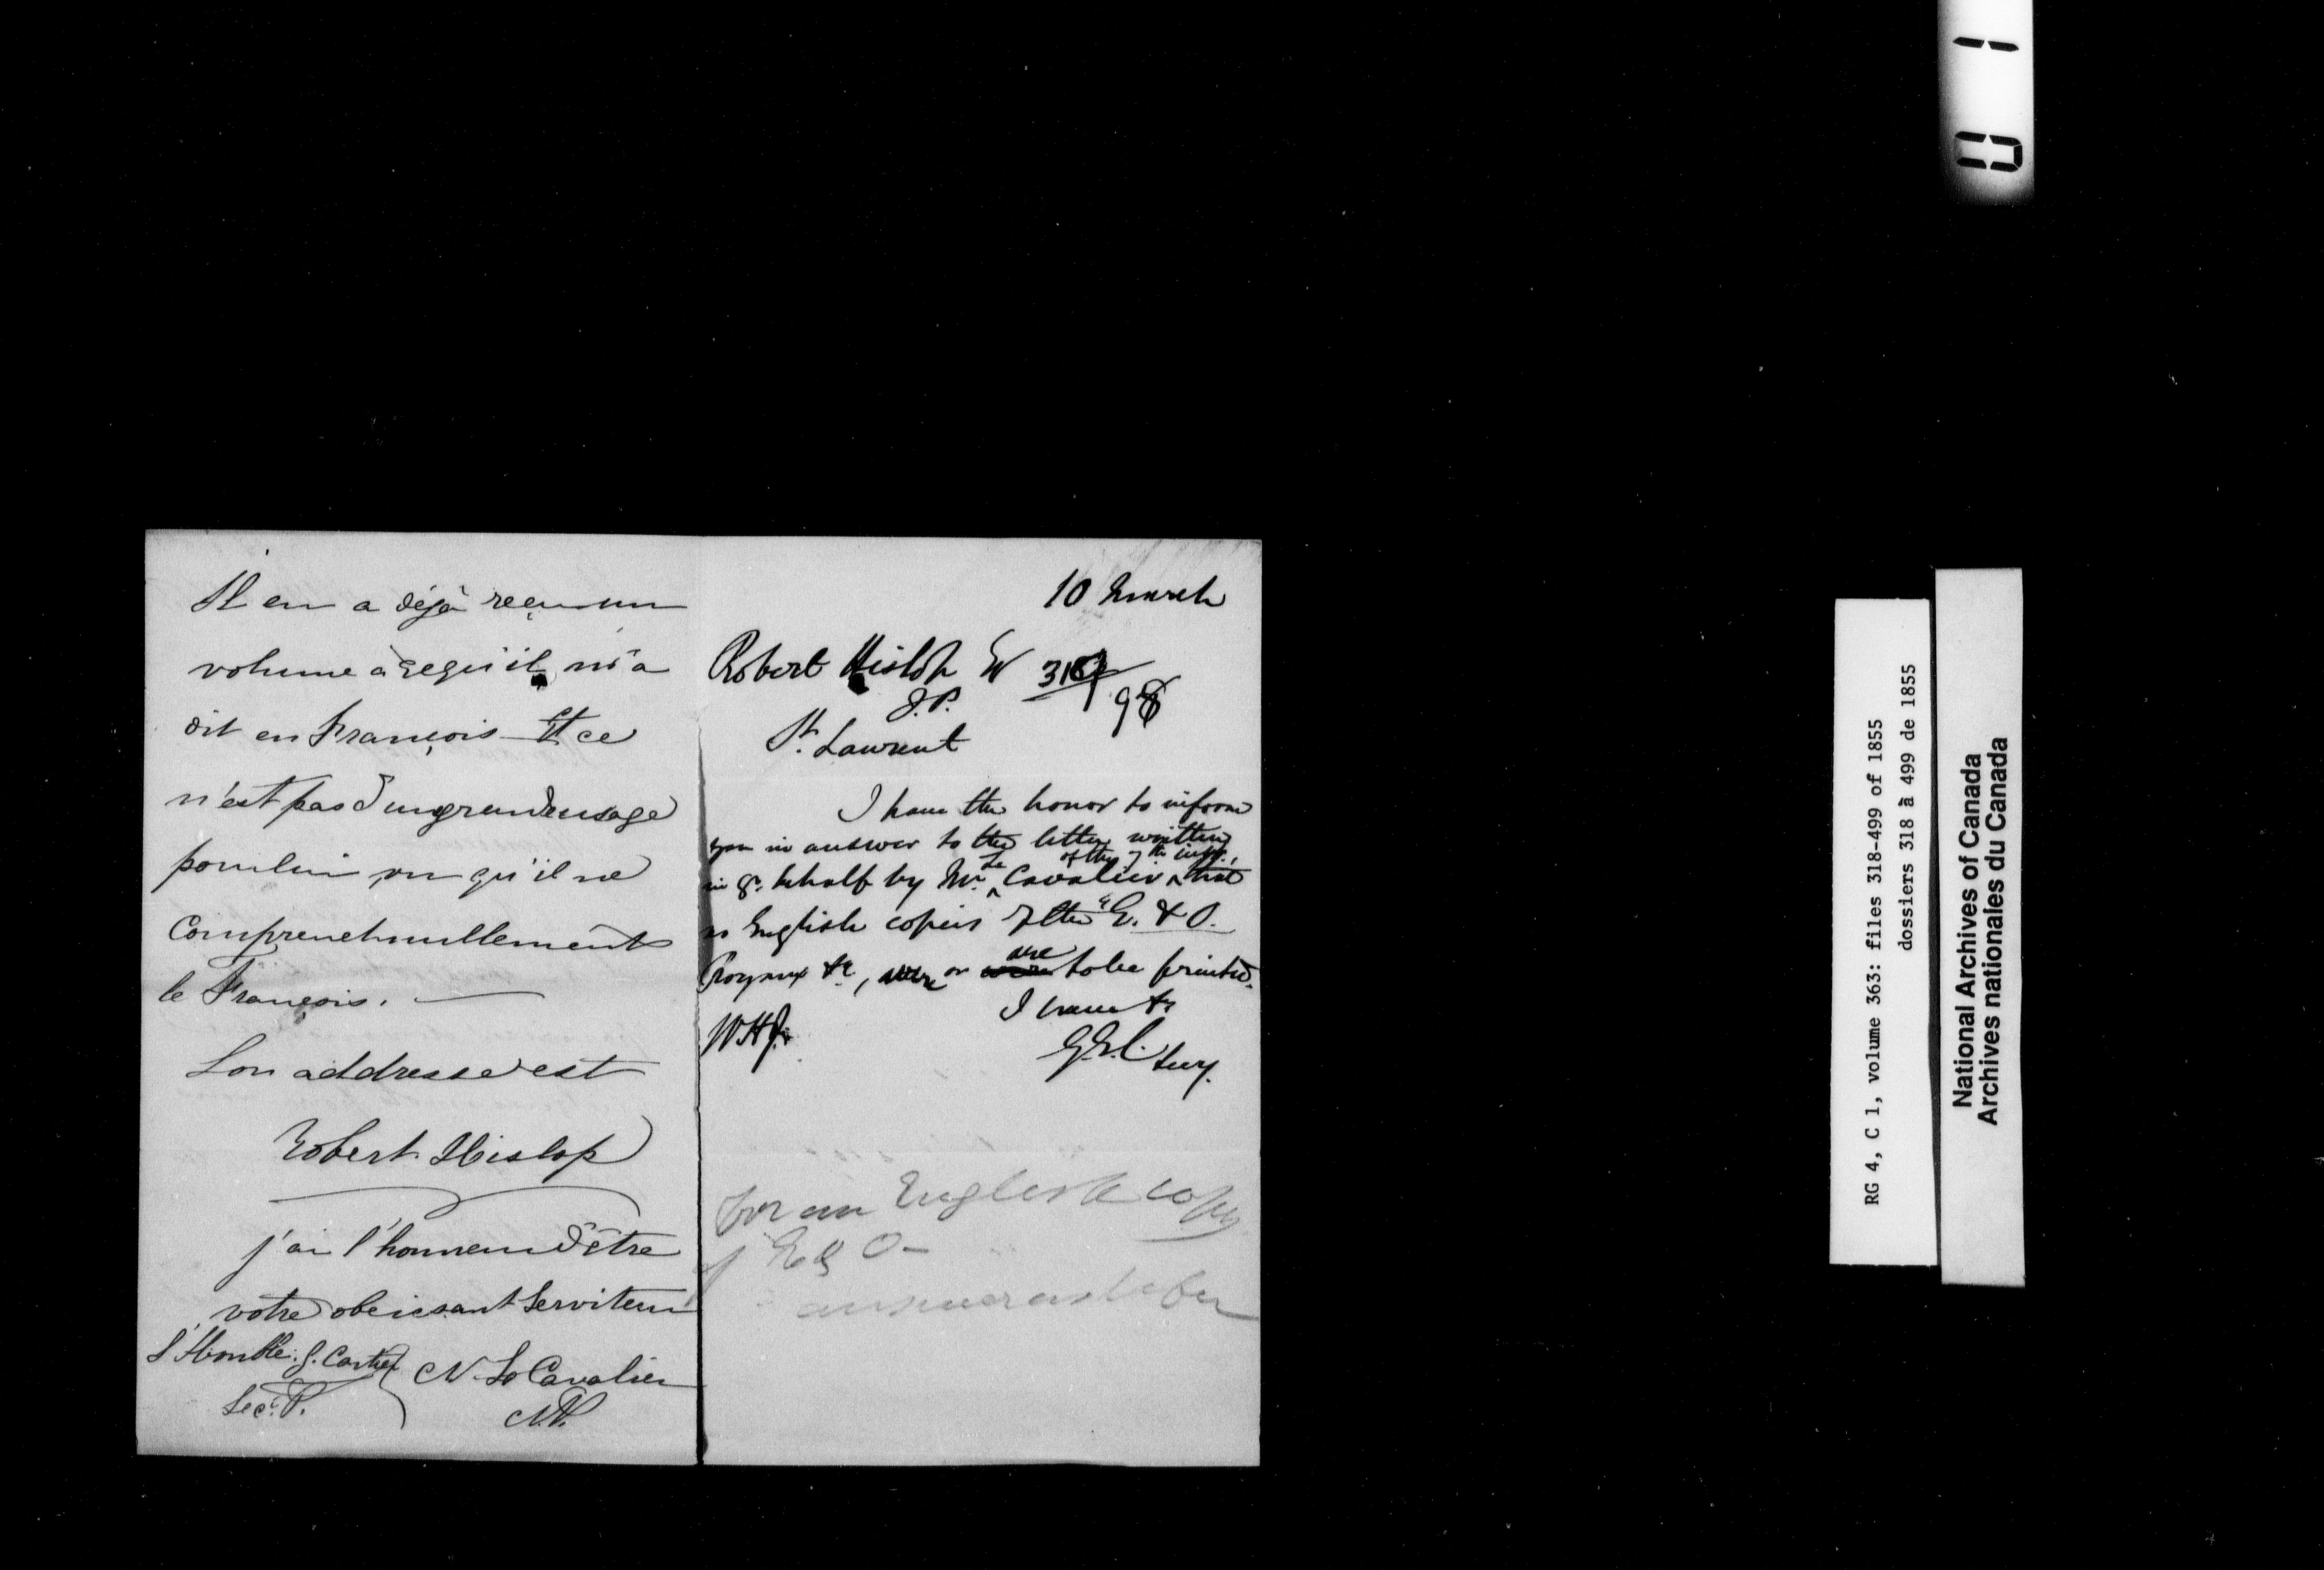 Il en a déjà reçu un
volume à ce qu'il m'a
dit en François Et ce
n'est pas d'un grand usage
pour lui vu qu'il ne
Comprenet nullement
le François. —
Son addresse est
Robert Hislop
j'ai l'honneur d'être
votre obeissant Serviteur
l'Honble. G. Cartier
Sec. P.
N. Le Cavalier
N.P.
10 March
Robert Hislop
J.P.
318
98
St. Laurent
I have the honor to inform
you in answer to the letter written
of the
in yr. behalf by Mr. Le Cavalier that
no English copies of the "E. & O.
are
&c, were or were to be printed.
I have &c
WHJ
G.E.C. Secy.
for an English copy
of E & O —
answer as before
01
RG 4, C 1, volume 363: files 318-499 of 1855
dossiers 318 à 499 de 1855
National Archives of Canada
Archives nationales du Canada